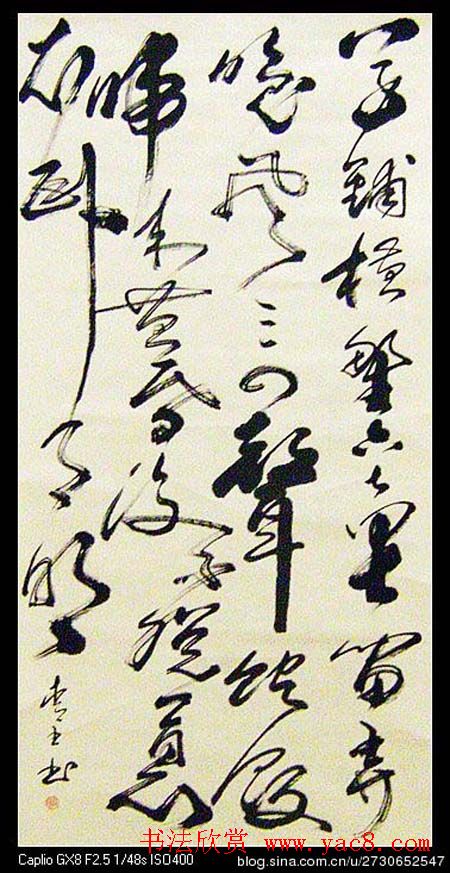 草鋪橫野六七里笛弄
晚風三四聲飽飯
歸来黃昏後不脫蓑
衣卧月明
书法欣赏 www.yac8.com
Caplio GX8 F2.5 1/48s ISO400
blog.sina.com.cn/u/2730652547